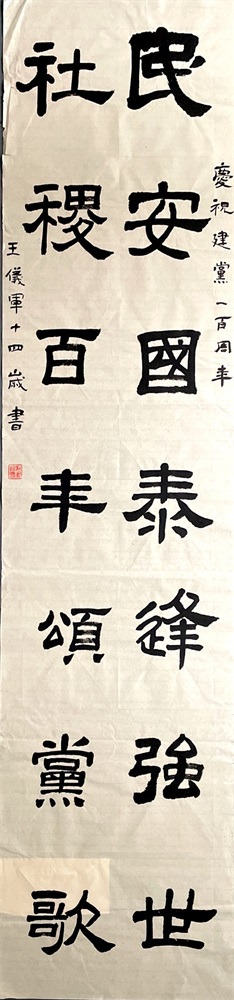 慶祝建黨一百周年
民安國泰逢強世
社稷百年頌黨歌
王儀軍十四歲書